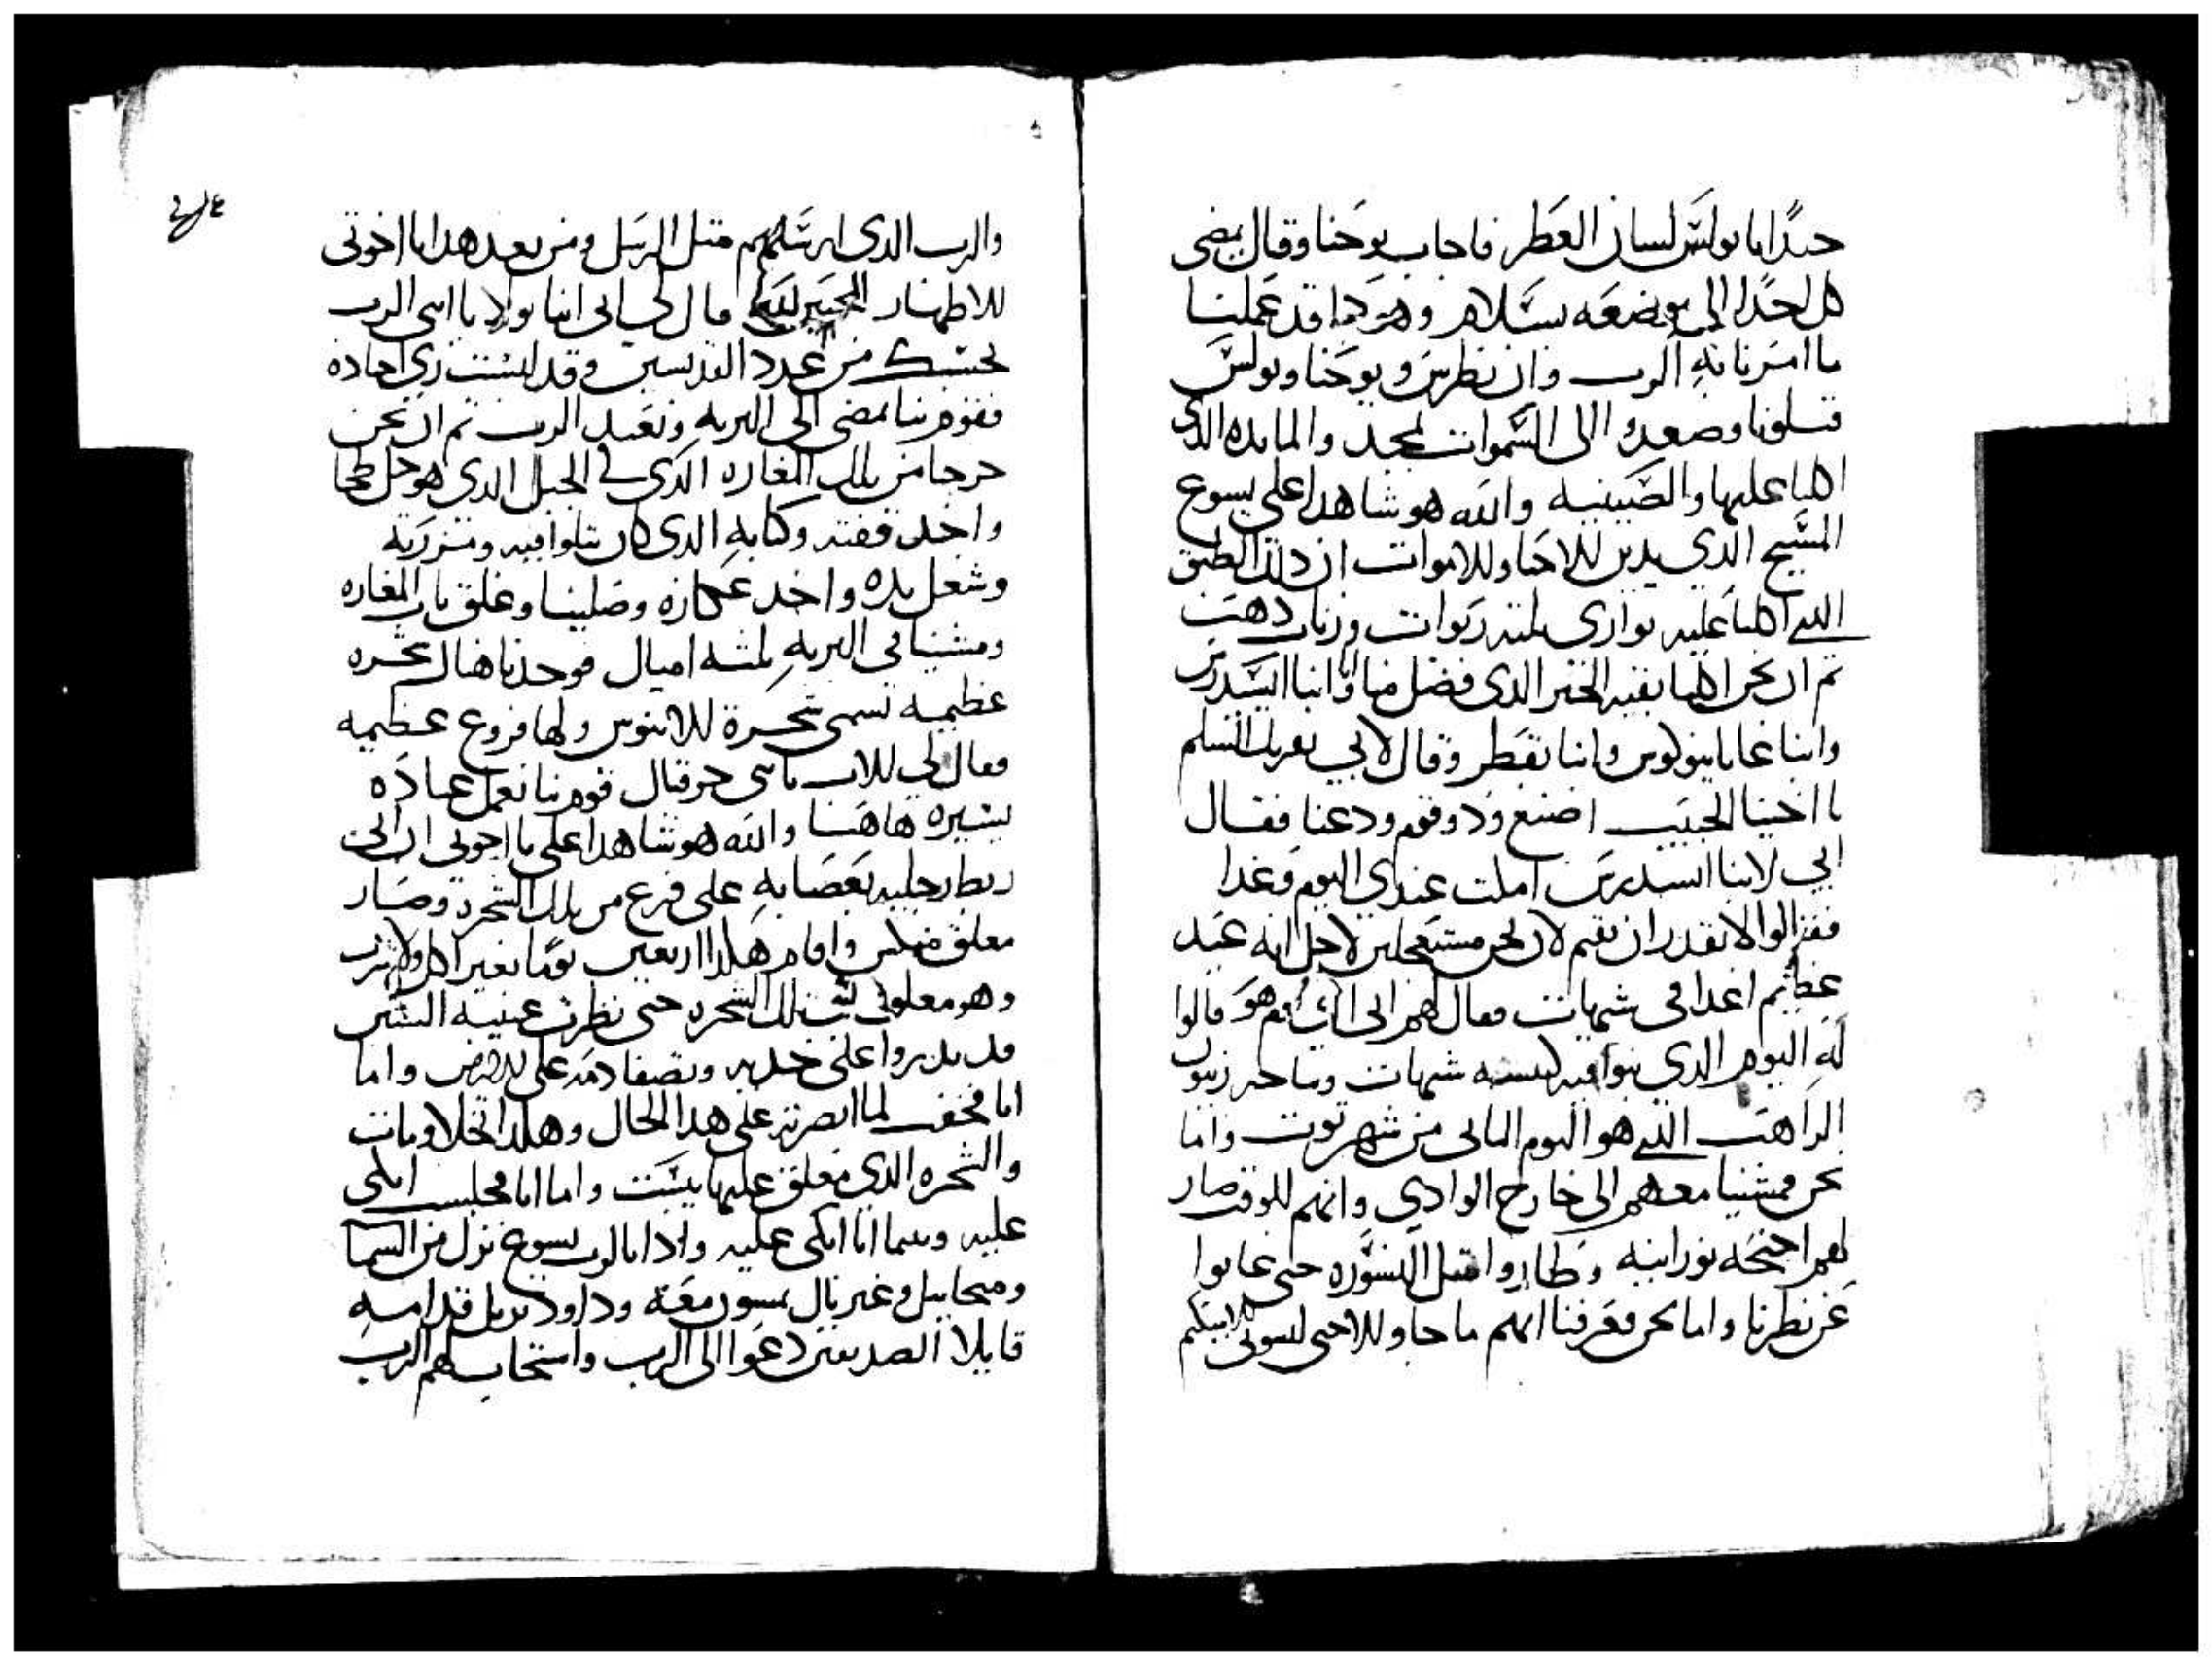 جيدًا يا بولس لسان العطر فاجاب يوحنا وقال يمضى
كل احدًا الى موضعه بسلام وهودا قد عملنا
ما امرنا به الرب وان بطرس ويوحنا وبولس
قبلونا وصعدوا الى السموات بمجد والمايده الذى
اكلنا عليها والصينيه والله هو شاهدا على يسوع
المسيح الذي يدين للاحيا وللاموات ان ذلك الطبق
الدى اكلنا عليه يوازى ثلثة ربوات وزنات ذهب
ثم ان نحن اكلنا بقية الخبز الذى فضل منا وانبا ايسيدرس
وانبا وانبا بقطر وقال لابي
يا اخينا الحبيب اصنع ودا وقوم ودعنا فقال
ابي لانبا ايسيدرس املت عندى اليوم وغدا
فقالوا لا نقدر ان نقيم لان نحن مستعجلين لاجل انه عيد
عظيم اغدا فى شيهات فقال لهم ابى اى يوم هو قالوا
له اليوم الذي بنوا فيه كنيسه شيهات
الراهب الدى هو اليوم التانى من شهر توت واما
نحن فمشينا معهم الى خارج الوادي وانهم للوقت صار
لهم اجنحه نورانيه وطاروا مثل النسوره حتى غابوا
عن نظرنا واما نحن فعرفنا انهم ما جاو للاحتى
والرب الدى ارسلهم مثل الرسل ومن بعد هذا يا اخوتى
للاطهار المحبين لله قال لى ابى انبا بولا يا ابنى الرب
يحسبك من عدد القديسين وقد لبست زي
فقوم بنا نمضى الى البريه ونعبد الرب ثم ان نحن
خرجنا من تلك المغاره الذى فى الجبل الذى هو
واخد قفته وكتابه الذى كان يتلوا فيه ومزرته
وشعل يده واخد عكازه وصلينا وغلق باب المغاره
ومشينا فى البريه ثلثه اميال فوجدنا هناك شجره
عظيمه تسمى شجرة للابنوس ولها فروع عظيمه
فقال لى للاب يا بنى حزقيال قوم بنا نعمل عباده
يسيره هاهنا والله هو شاهدا على يا اخوتى ان ابى
ربط رجليه بعصابه على فرع من تلك الشجرة وصار
معلق منكس واقام هكدا اربعين يومًا بغير اكل ولا شرب
وهو معلق فى تلك الشجره حتى نظرت عينيه التنتين
قد بدروا على خديه ونصفا دمه على للارض واما
انا فخفت لما ابصرته على هدا الحال وهكدا ومات
والشجره الذي معلق عليها يبست واما انا فجلست ابكى
عليه وبينما انا ابكى عليه وادا بالرب يسوع نزل من السما
وميخاييل وغبريال يسيرون معه وداود يرتل قدامه
قايلا الصديقين دعوا الى الرب واستجاب لهم الرب